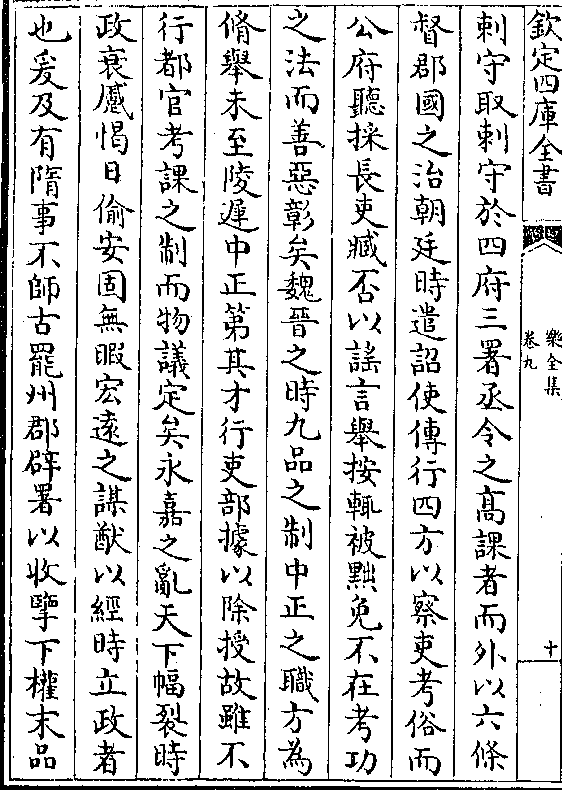 欽定四庫全書
樂全集
卷九
十
刺守取刺守於四府三署丞令之髙課者而外以六條
督郡國之治朝廷時遣詔使傳行四方以察吏考俗而
公府聽採長吏臧否以謡言舉按輒被黜免不在考功
之法而善惡彰矣魏晉之時九品之制中正之職方為
脩舉未至陵遲中正第其才行吏部據以除授故雖不
行都官考課之制而物議定矣永嘉之亂天下幅裂時
政衰蹙愒日偷安固無暇宏逺之謀猷以經時立政者
也爰及有隋事不師古罷州郡辟署以收擥下權末品